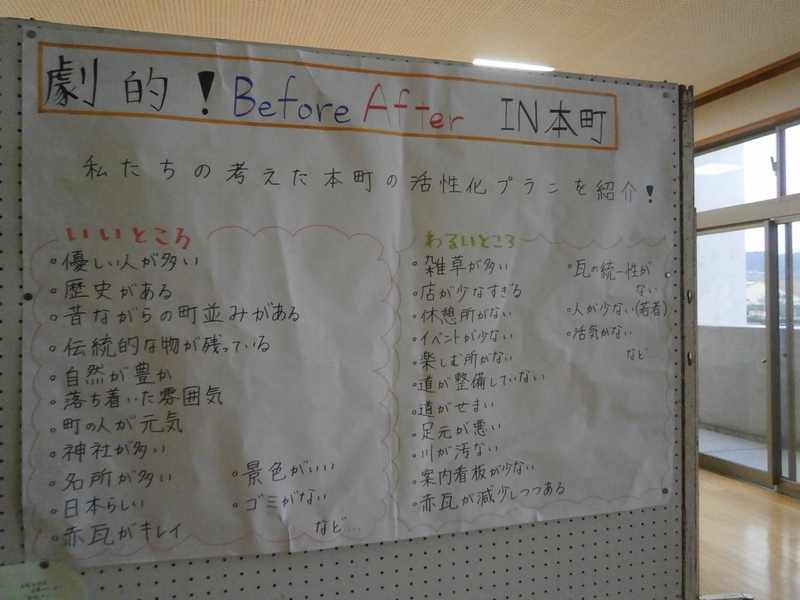 劇的!Before After IN本町
私たちの考えた本町の活性化プランを紹介!
いいところ
・優しい人が多い
・歴史がある
・昔ながらの町並みがある
・伝統的な物が残っている
・自然が豊か
・落ち着いた雰囲気
・町の人が元気
・神社が多い
・名所が多い
・日本らしい
・赤瓦がキレイ
・景色がいい
・ゴミがない
など…
わるいところ
・雑草が多い
・店が少なすぎる
・休憩所がない
・イベントが少ない
・楽しむ所がない
・道が整備していない
・道がせまい
・足元が悪い
・川が汚ない
・案内看板が少ない
・赤瓦が減少しつつある
・瓦の統一性が
ない
・人が少ない(若者)
・活気がない
など